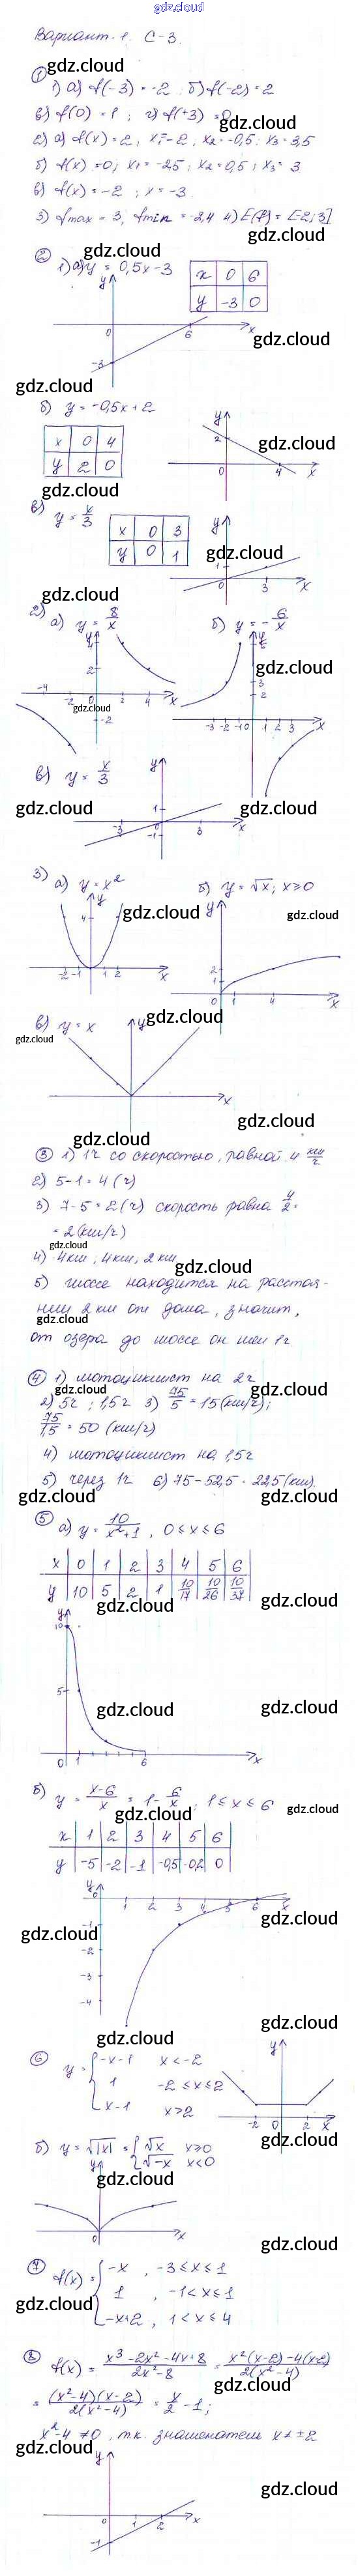 gdz.cloud
Вариант-1. С-3.
① 1) а) f(-3) = -2 б) f(-2) = 2
в) f(0) = 1; г) f(+3) = 0
2) а) f(x) = 2, x₁ = -2, x₂ = -0,5; x₃ = 3,5
б) f(x) = 0; x₁ = -2,5; x₂ = 0,5; x₃ = 3
в) f(x) = -2; x = -3
3) fmax = 3, fmin = -2,4 4) E(f) = [-2; 3]
② 1) а) y = 0,5x-3
x 0 6
y -3 0
б) y = -0,5x+2
x 0 4
y 2 0
в) y = x/3
x 0 3
y 0 1
2) а) y = 8/x б) y = -6/x
в) y = x/3
3) а) y = x² б) y = √x; x≥0
в) y = x
③ 1) 1г со скоростью, равной 4 км/г
2) 5-1 = 4 (г)
3) 7-5 = 2 (г) скорость равна 4/2 =
= 2 (км/г)
4) 4км, 4км, 2 км
5) шоссе находится на расстоя-
нии 2 км от дома, значит,
от озера до шоссе он шел 1г
④ 1) мотоциклист на 2г
2) 5г; 1,5г 3) 75/5 = 15 (км/г);
75/1,5 = 50 (км/г)
4) мотоциклист на 1,5г
5) через 1г 6) 75-52,5 = 22,5 (км).
⑤ а) y = 10/x²+1, 0≤x≤6
x 0 1 2 3 4 5 6
y 10 5 2 1 10/17 10/26 10/37
б) y = x-6/x = 1-6/x, 1≤x≤6
x 1 2 3 4 5 6
y -5 -2 -1 -0,5 -0,2 0
⑥ y = { -x-1 x<-2
1 -2≤x≤2
x-1 x>2
б) y = √|x| = { √x x≥0
√-x x<0
⑦ f(x) = { -x, -3≤x≤1
1, -1<x≤1
-x+2, 1<x≤4
⑧ f(x) = x³-2x²-4x+8/2x²-8 = x²(x-2)-4(x-2)/2(x²-4)
= (x²-4)(x-2)/2(x²-4) = x/2 -1;
x²-4≠0, т.к. знаменатель x≠±2